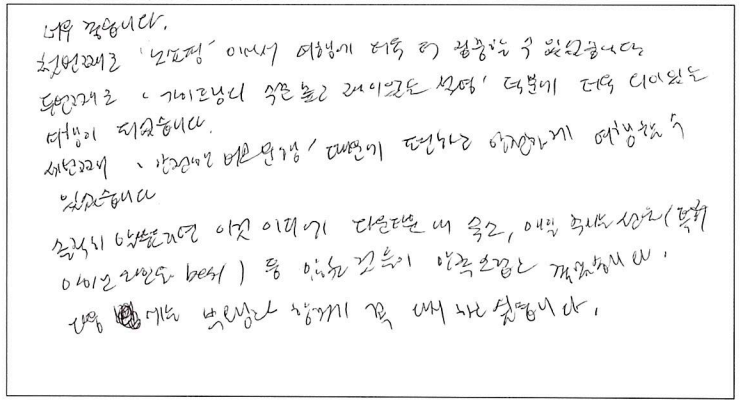 너무 좋습니다.
첫번째로 '노쇼핑' 이여서 여행에 더욱 더 집중할 수 있었습니다
두번째로 '가이드님의 수준 높고 재미있는 설명' 덕분에 더욱 의미있는
여행이 되었습니다.
세번째 '안전한 버스 운행' 때문에 편하고 안전하게 여행할 수
있었습니다
솔직히 말씀드리면 이것 이외에 숙소, 매일 주시는 (특히
아이스 와인도 best) 등 모든 것들이 만족스럽고 좋았습니다.
다음 에는 부모님과 함께 꼭 다시 하고 싶습니다.